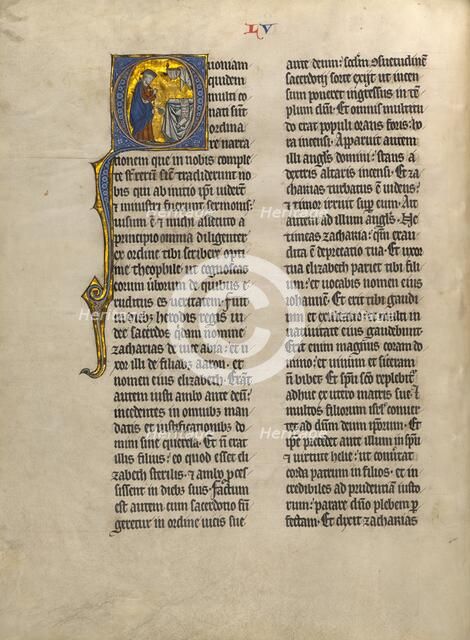 LV
Quoniam
quidem
multi co
nati sūt
ordina
re narra
tionem que in nobis comple
te sūt rerū sicut tradiderunt no
bis qui ab initio ip̄i viderūt
et ministri fuerunt sermonis:
uisum ē et michi assecuto a
principio omnia diligenter
ex ordine tibi scribere opti
me theophile ut cognoscas
eorum uerborum de quibus e
ruditus es ueritatem. Fuit
in dieb; herodis regis iu
dee sacerdos quidam nomine
zacharias de uice abia: et u
xor illi de filiabus aaron. et
nomen eius elizabeth. Erāt
autem iusti ambo ante deū:
incedentes in omnibus man
datis et iustificationibus do
mini sine querela. Et nō erat
illis filius: eo quod esset eli
zabeth sterilis et ambo proces
sissent in dieb; suis. Factum
est autem cum sacerdotio fū
geretur in ordine uicis sue
ante deum: scdm̄ cōsuetudinē
sacerdotij sorte exijt ut incen
sum poneret ingressus in tē
plum dn̄i. Et omnis multitu
do erat populi orans foris: ho
ra incensi. Apparuit autem
illi angl̄s domini: stans a
dextris altaris incensi. Et za
charias turbatus ē uidens:
et timor irruit sup̄ eum. Ait
autem ad illum angl̄s. Ne
timeas zacharia: qm̄ exau
dita ē deprecatio tua. Et uxor
tua elizabeth pariet tibi filiū:
et uocabis nomen eius
iohannem. Et erit tibi gaudi
um et exultatio: et multi in
natiuitate eius gaudebunt.
Erit enim magnus coram do
mino: et uinum et siceram
nō bibet. Et sp̄u sc̄o replebit̄
adhuc ex utero matris sue: et
multos filiorum isrl̄ conuer
tet ad dn̄m deum ipsorum. Et
ipse precedet ante illum in sp̄u
et uirtute helie: ut conuertat
corda patrum in filios. et in
credibiles ad prudentiam iusto
rum: parare dn̄o plebem per
fectam. Et dixit zacharias
Heritage Images